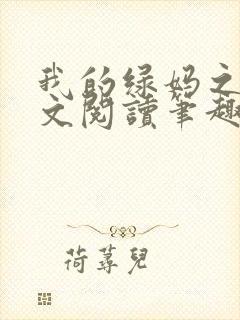 我的绿妈之
文閱讀筆趣
荷蕁兒